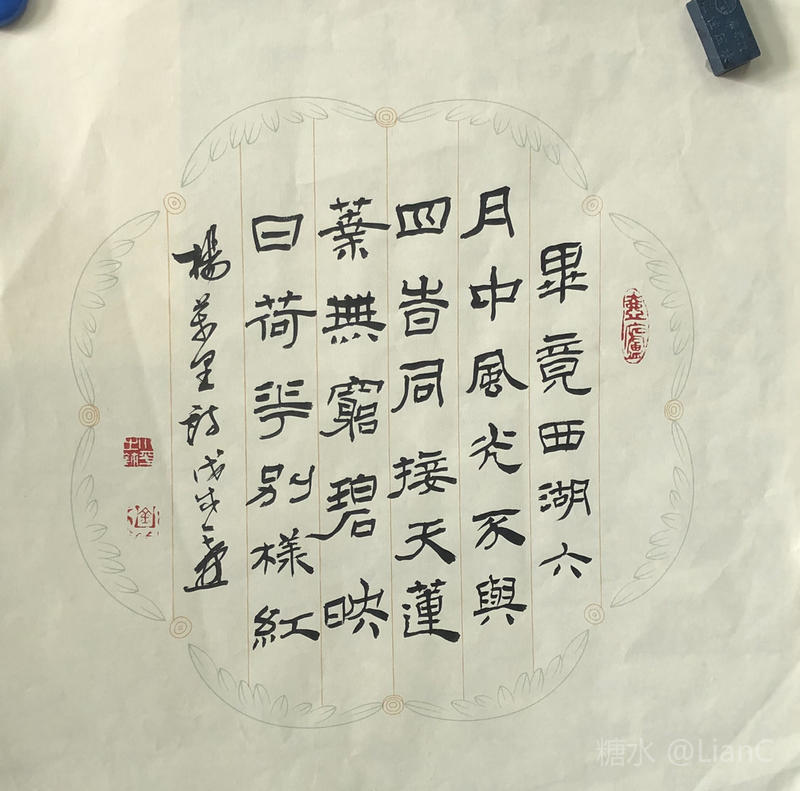 畢竟西湖六
月中風光不與
四峕同接天蓮
葉無窮碧映
日荷華別樣紅
楊萬里詩戊戌
糖水 @LianC